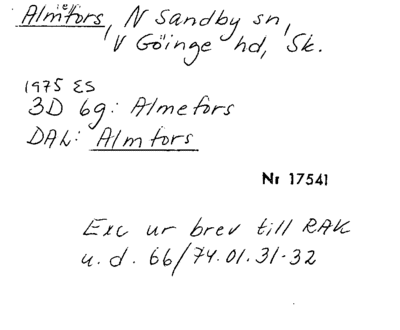 Almefors, N Sandby sn,
V Göinge hd, Sk.
1975 ES
3D 6g: Almefors
DAL: Almfors
Nr 17541
Exc ur brev till RAK
u.d. 66/74.01.31-32